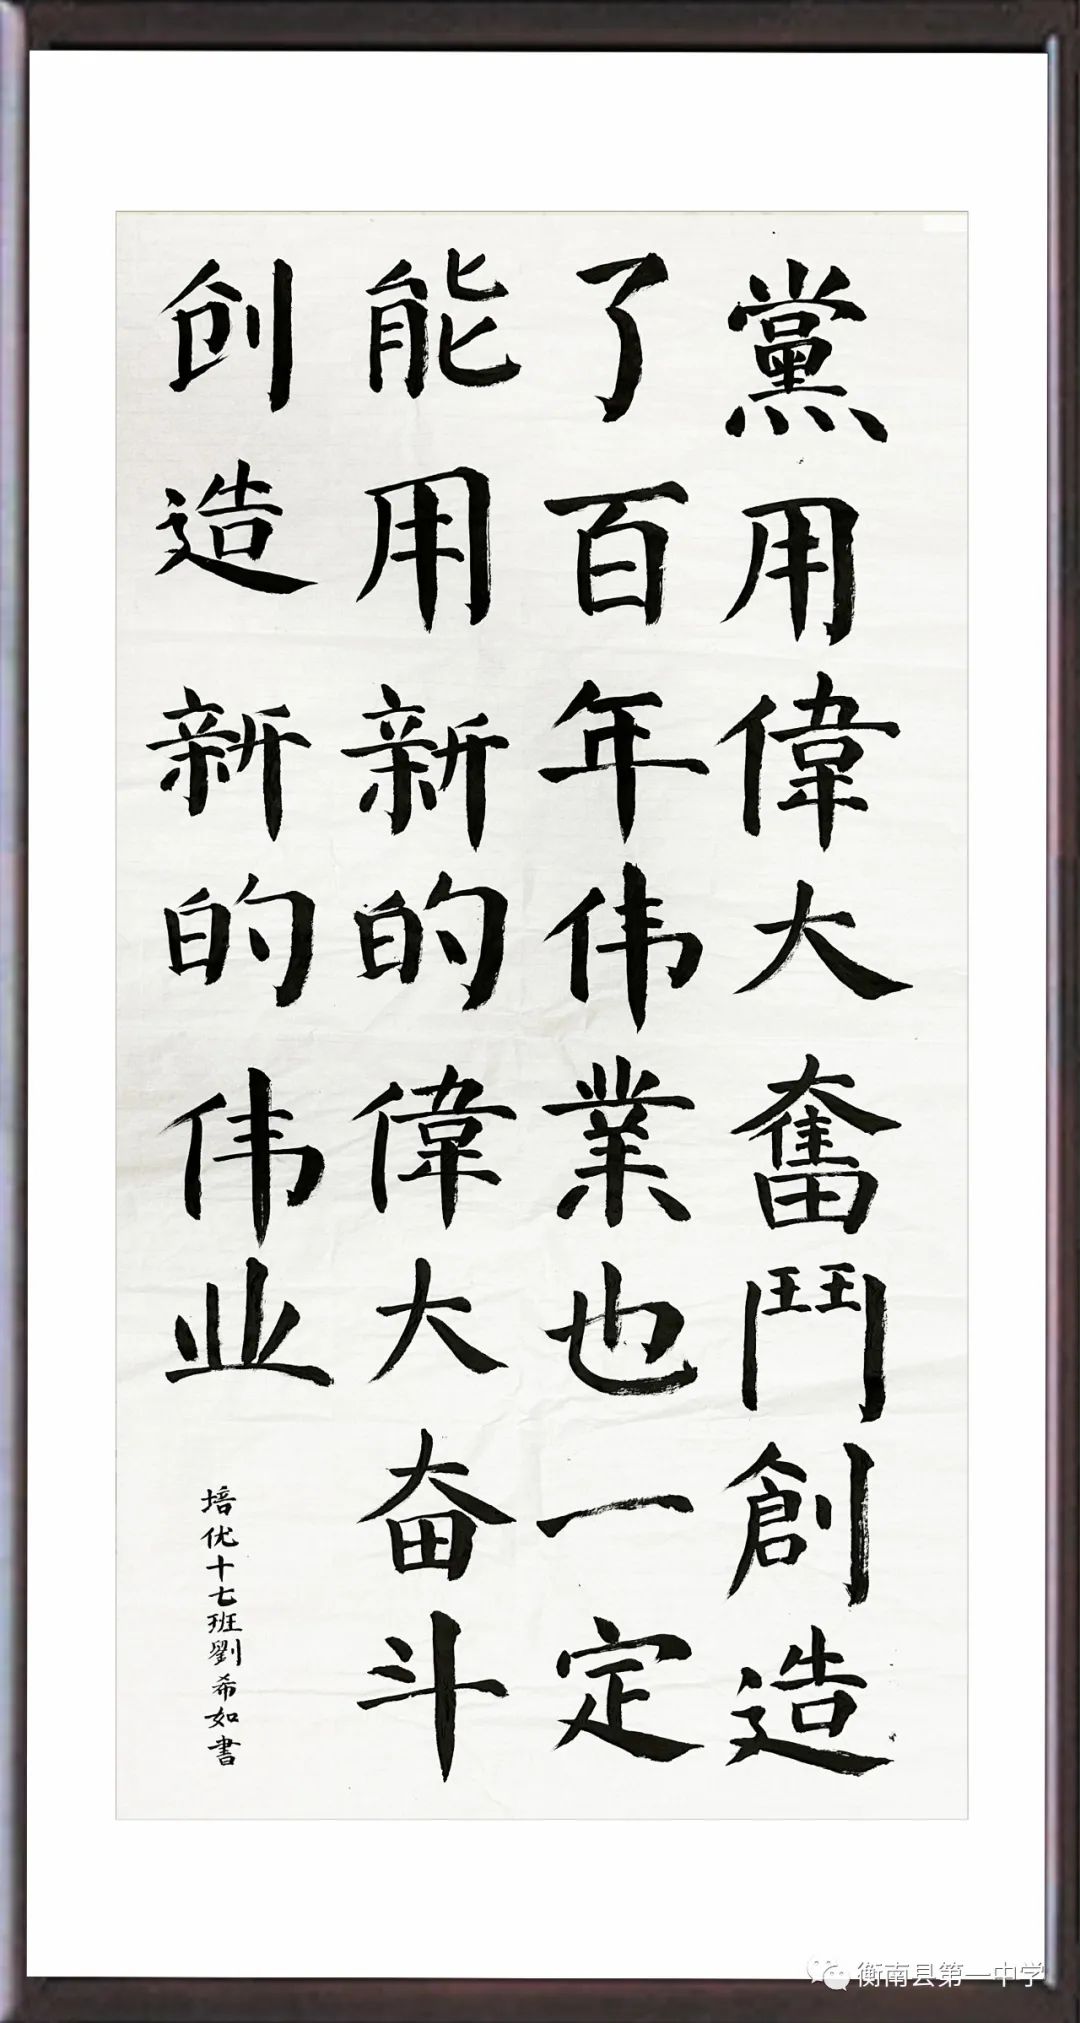 黨用偉大奮鬥創造
了百年伟業也一定
能用新的偉大奋斗
创造新的伟业
培优十七班劉希如書
衡南县第一中学